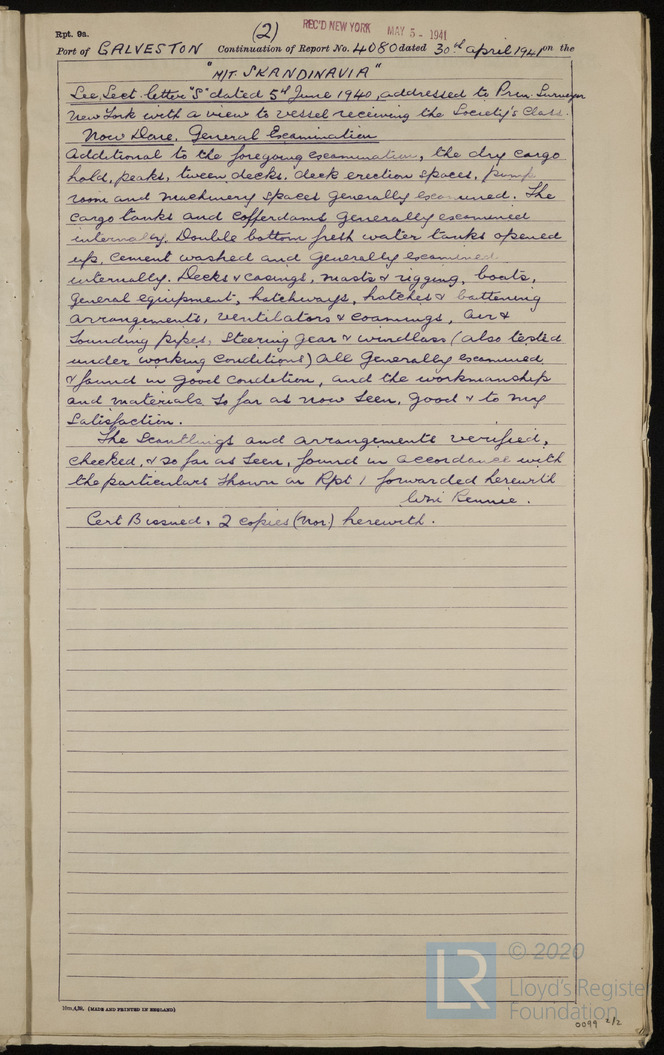 Rpt. 9a.
(2)
REC'D NEW YORK MAY 5 - 1941
Port of GALVESTON Continuation of Report No. 4080 dated 30th April 1941 on the
"M/T. SKANDINAVIA"
See Sect. letter "S" dated 5th June 1940, addressed to Prin. Surveyor
New York with a view to vessel receiving the Society's Class.
Now Done. General Examination
Additional to the foregoing examination, the dry cargo
hold, peaks, tween decks, deck erection spaces, pump
room and machinery spaces generally examined. The
cargo tanks and cofferdams generally examined
internally. Double bottom fresh water tanks opened
up, cement washed and generally examined
internally. Decks & casings, masts & rigging, boats,
general equipment, hatchways, hatches & battening
arrangements, ventilators & coamings, air &
sounding pipes, steering gear & windlass (also tested
under working conditions) all generally examined
& found in good condition, and the workmanship
and materials so far as now seen, good & to my
satisfaction.
The scantlings and arrangements verified,
checked, & so far as seen, found in accordance with
the particulars shown on Rpt 1 forwarded herewith
Wm Rennie.
Cert B issued, 2 copies (Nor.) herewith.
10m,4,39. (MADE AND PRINTED IN ENGLAND)
LR
© 2020
Lloyd's Register
Foundation
0099 2/2